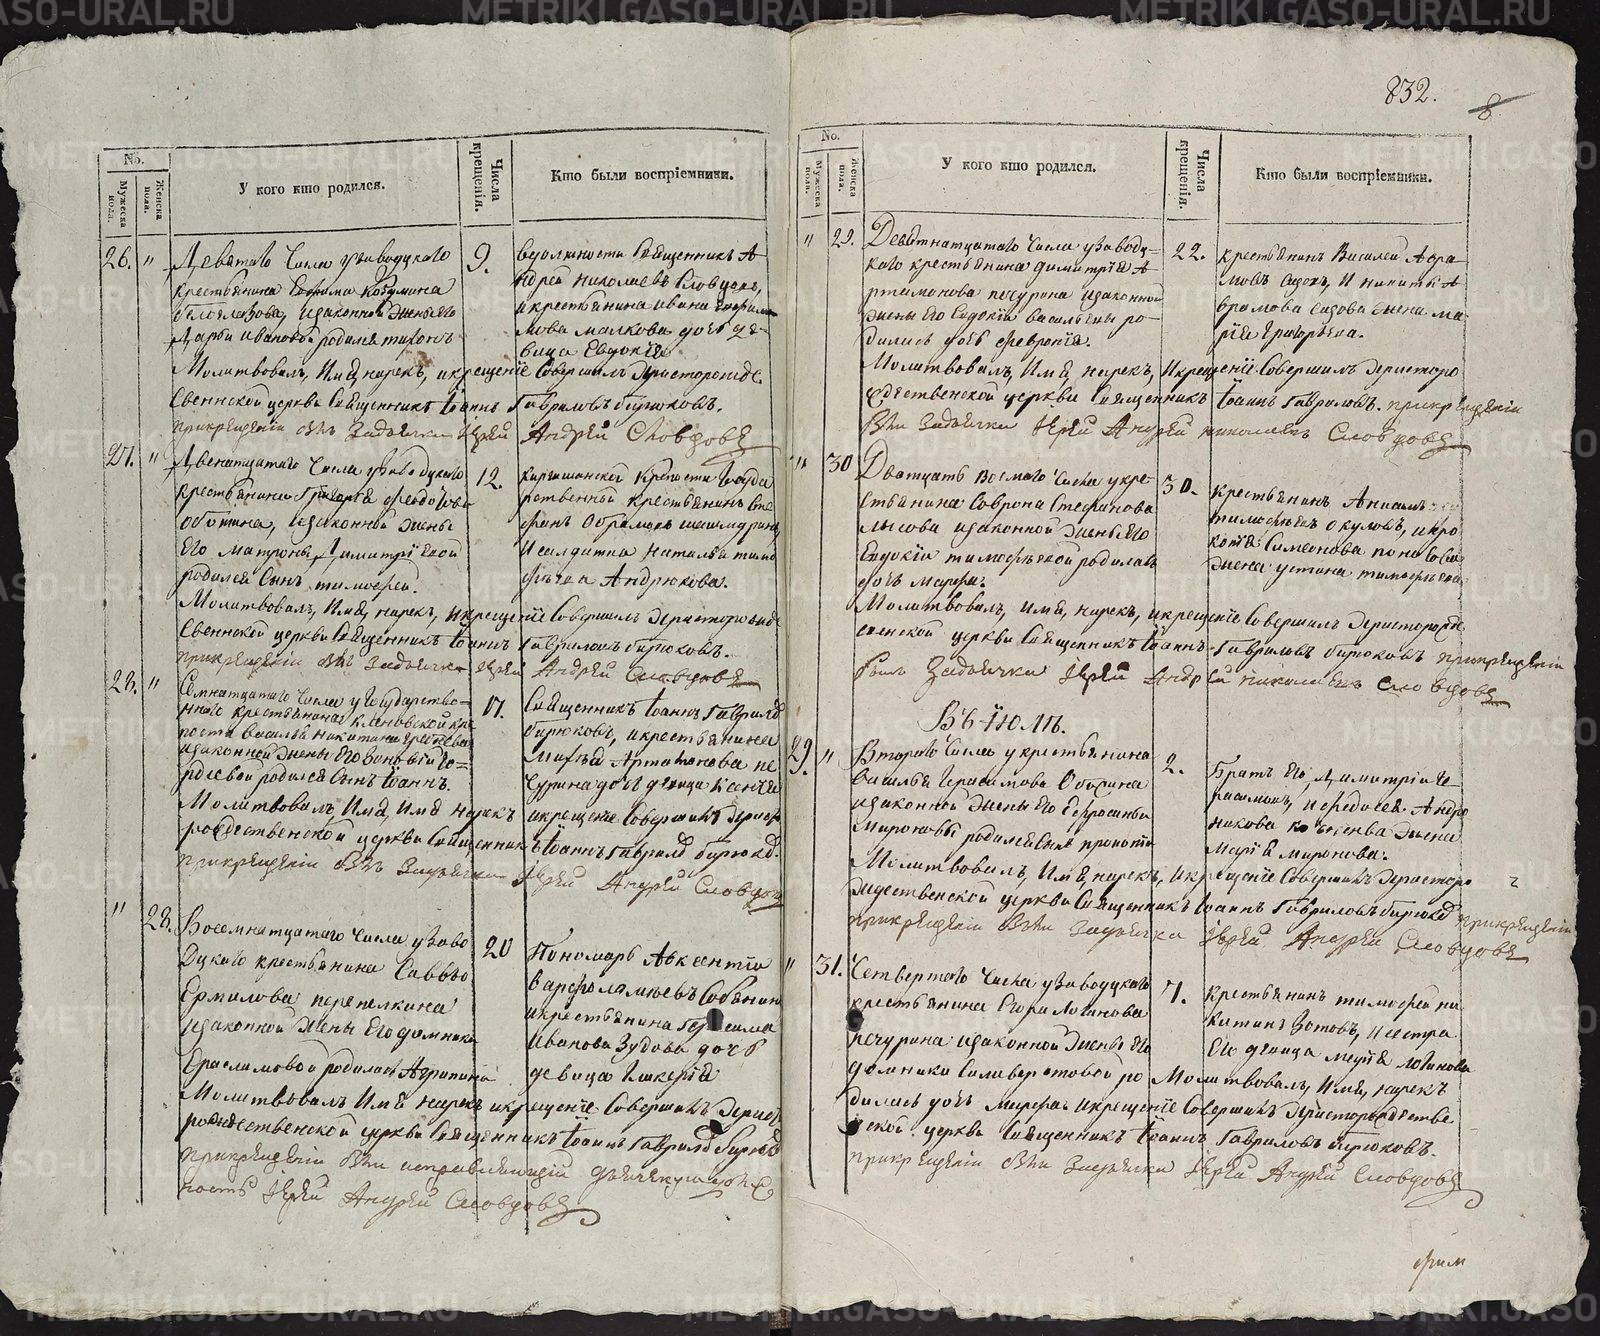 METRIKI.GASO-URAL.RU
832.
8
No.
Мужеска пола.
Женска пола.
У кого кто родился.
Числа крещенія.
Кто были воспріемники.
26. " Деватаго числа узаводцкаго
крестьянина Ефима Козмина
белоглазова, изаконной жены его
Дарьи ивановой родился тихонъ
9.
вдолжности Священникъ А
ндрей николаевъ Словцовъ,
икрестьянина ивана
мова малкова дочь де-
вица Евдокія
Молитвовалъ, Имя, нарекъ, икрещеніе Совершилъ христорожде
свенской церкви Священникъ Іоаннъ Гавриловъ бирюковъ.
прикрещеніи былъ Задьячка Іерей Андрей Словцовъ
27. " Двенатцатаго числа узаводцкаго
крестьянина Григорья феодотова
оботина, изаконной жены
Его матроны Димитріевой
родился Сынъ тимофей.
12.
крепости Госуда
рственный крестьянинъ Сте
фанъ Абрамовъ
Исалдатка наталья тимо
феева Андрюкова.
Молитвовалъ, имя, нарекъ, икрещеніе Совершилъ христорожде
свенской церкви Священникъ Іоаннъ Гавриловъ бирюковъ.
прикрещеніи былъ Задьячка Іерей Андрей Словцовъ
28. " Семнатцатаго числа уГосударстве-
ннаго крестьянина кленовской кре
пости василья никитина
изаконной жены Его Зиновьи Го-
рдеевой родился Сынъ Іоаннъ.
17.
Священникъ Іоаннъ Гаврилов
бирюковъ, икрестьянина
Артамонова пе
чурина дочь девица Ксенія
Молитвовалъ Имя, имя нарекъ икрещеніе Совершилъ христо
рождественской церкви Священникъ Іоаннъ Гаврилов бирюков.
прикрещеніи былъ Задьячка Іерей Андрей Словцовъ
" 28. Восемнатцатаго числа узаво
дцкаго крестьянина Саввы
Ермилова перепелкина
изаконной жены Его домники
Ерасимовой родилась Агрипина
20
Пономарь Авксентій
варфоламѣевъ Собянин
икрестьянина Герасима
иванова Зудова дочь
девица Гликерія
Молитвовалъ имя нарекъ икрещеніе Совершилъ христо
рождественской церкви Священникъ Іоаннъ Гаврилов бирюков
прикрещеніи былъ исправляющій дьяческую долж
ность Іерей Андрей Словцовъ
No.
Мужеска пола.
Женска пола.
У кого кто родился.
Числа крещенія.
Кто были воспріемники.
" 29. Девятнатцатаго числа узаводц-
каго крестьянина димитрія А
ртамонова печурина изаконной
жены Его Евдокіи васильевы ро-
дилась дочь феврония.
22.
крестьянинъ Василей Авра
мовъ сидовъ, И никиты А
врамова сидова жена ма-
рія Григорьева.
Молитвовалъ, Имя, нарекъ, Икрещеніе Совершилъ христоро
ждественской церкви Священникъ Іоаннъ Гавриловъ. прикрещеніи
былъ Задьячка Іерей Андрей николаевъ Словцовъ
" 30 Дватцать восмаго числа укре-
стьянина Софрона Стефанова
лысова изаконной жены Его
Евдокіи тимофѣевой родилась
дочь марфа.
30.
Крестьянинъ Анисимъ
тимофѣевъ окуловъ, ипро
копія Симеонова
жена устина тимофѣева
Молитвовалъ, имя, нарекъ, икрещеніе Совершилъ христорожде
свенской церкви Священникъ Іоаннъ Гавриловъ бирюковъ прикрещеніи
былъ Задьячка Іерей Андрей николаевъ Словцовъ
Въ Іюль.
29. " Втораго числа укрестьянина
василья Герасимова Обоскина
изаконной жены Его Ефросиньи
мироновы родился Сынъ прокопій
2.
Братъ его, Димитрій Ге
расимовъ, ифедосея Андро
никова жена
Марія миронова.
Молитвовалъ, Имя нарекъ, икрещеніе Совершилъ христоро
ждественской церкви Священникъ Іоаннъ Гавриловъ бирюков прикрещеніи
прикрещеніи были Задьячка Іерей Андрей Словцовъ
" 31. Четвертаго числа узаводцкаго
крестьянина Егора Логинова
печурина изаконной жены Его
домники Силиверстовой ро
дилась дочь марфа
7.
крестьянинъ тимофей ни
китинъ Зотовъ, Исестра
Его девица марія логинова
Молитвовалъ, имя, нарекъ
икрещеніе Совершилъ христорождестве
нской церкви Священникъ Іоаннъ Гавриловъ бирюковъ.
прикрещеніи были Задьячка Іерей Андрей Словцовъ
METRIKI.GASO-URAL.RU